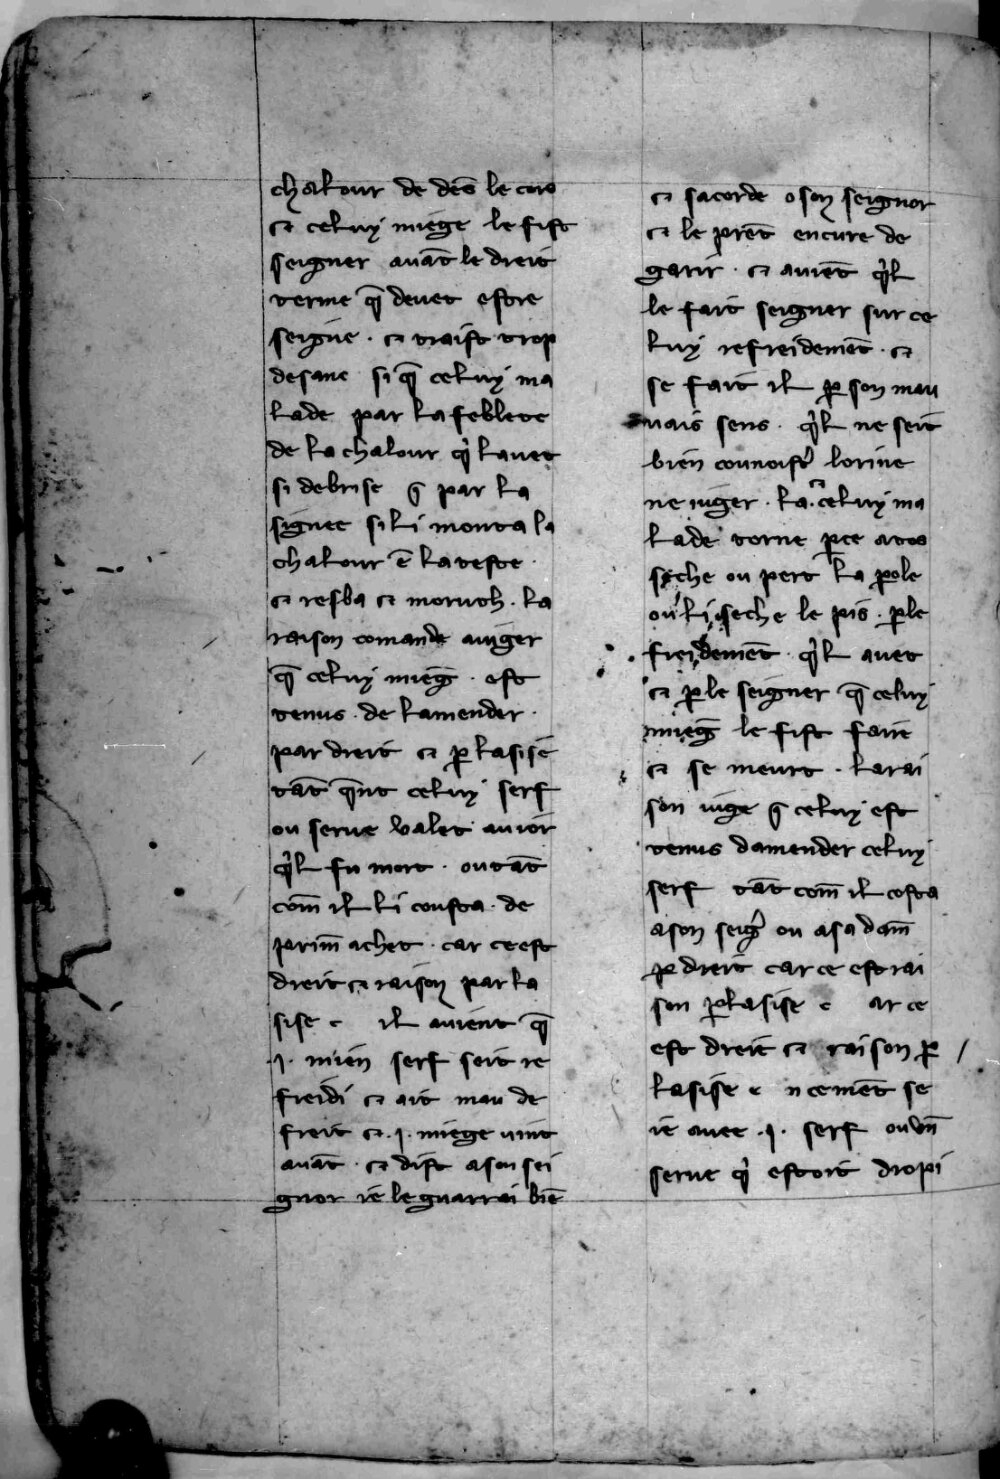 chalour de dēs le cors
⁊ celuy miege le fist
seigner auāt le dreit
terme q̄ deuet estre
seigne · ⁊ traist trop
desanc si q̄ celuy ma
lade par la feblete
de la chalour qͥl auet
si debrise q̄ par la
signee si li monta la
chalour ē la teste ·
⁊ resba ⁊ moruth · la
raison comande a iuger
q̄ celuy mieḡ · est
tenus · de lamender ·
par dreit ⁊ ꝑ lasise
tāt q̄nt celuy serf
ou serue valet auior
qͥl fu mort · ou tāt
com̄ il li cousta · de
prim̄ achet · car ce est
dreit ⁊ raison par la
sise c il auient q̄
·j· mien serf soit re
freidi ⁊ ait mau de
freit ⁊ ·j· miege uint
auāt · ⁊ dist a son sei
gnor ie le guarrai biē
⁊ sacorde o son seignor
⁊ le prēt encure de
garir · ⁊ auiēt qͥl
le fait seigner sur ce
luy refreidemēt · ⁊
se fait il ꝑ son mau
uais sens · qͥl ne seit
bien counoistͬ lorine
ne iuger · la · ⁊ celuy ma
lade torne ꝑce a tos
seche ou pert la ꝑole
ou li seche le pis · ꝑle
freidemēt qͥl auet
⁊ ꝑ le seigner q̄ celuy
mieḡ le fist faire
⁊ se meurt · la rai
son iuge q̄ celuy est
tenus damender celuy
serf tāt com̄ il costa
a son seigͬ ou a sa dam̄
ꝑ dreit car ce est rai
son ꝑ lasise c ar ce
est dreit ⁊ raison ꝑ
lasise c ncemēt se
ie auee ·j· serf ou vn̄
serue qͥ estoit dropi